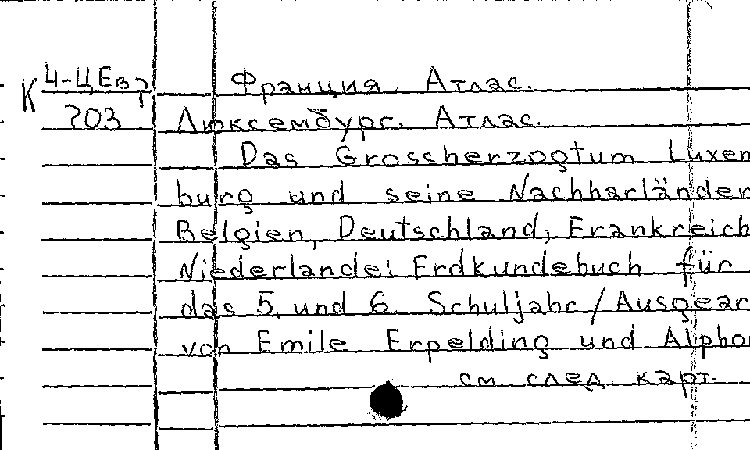 К 4-ЦЕвр Франция. Атлас.
203 Люксембург. Атлас.
Das Grossherzogtum Luxem
burg und seine Nachbarländer
Belgien, Deutschland, Frankreich
Niederlande: Erdkundebuch für
das 5. und 6. Schuljahr / Ausgear
von Emile Erpelding und Alpho
см след карт.